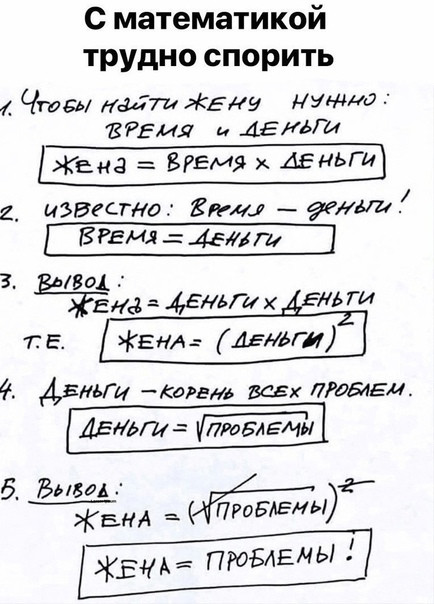 С математикой
трудно спорить
1. Чтобы найти жену нужно:
время и деньги
Жена = время x деньги
2. известно: Время – деньги!
время = деньги
3. Вывод:
Жена = деньги x деньги
т.е. Жена = (деньги)²
4. Деньги – корень всех проблем.
Деньги = √проблемы
5. Вывод:
Жена = (√проблемы)²
Жена = проблемы!